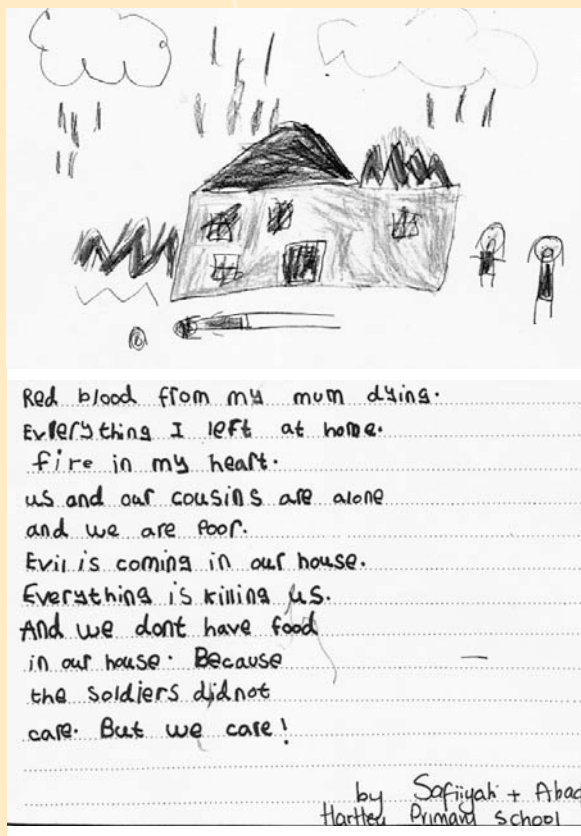 Red blood from my mum dying.
Everything I left at home.
fire in my heart.
us and our cousins are alone
and we are Poor.
Evil is coming in our house.
Everything is killing us.
And we dont have food
in our house. Because
the soldiers did not
care. But we care!
by Safiiyah + Abad
Hartley Primary School